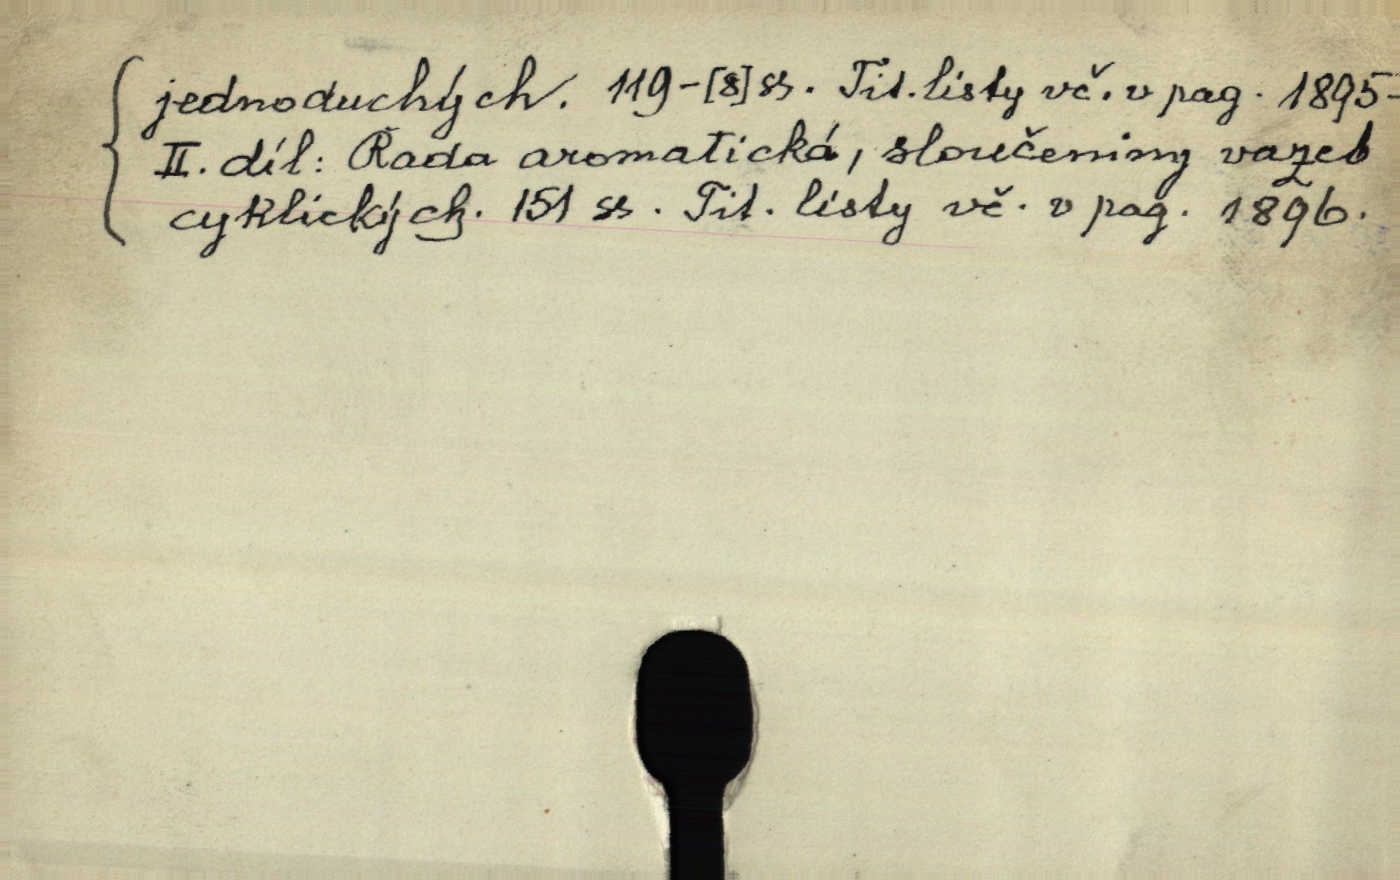 jednoduchých. 119-[8] ss. Tit. listy vč. v pag. 1895-
II. díl: Řada aromatická, sloučeniny vazeb
cyklických. 151 ss. Tit. listy vč. v pag. 1896.